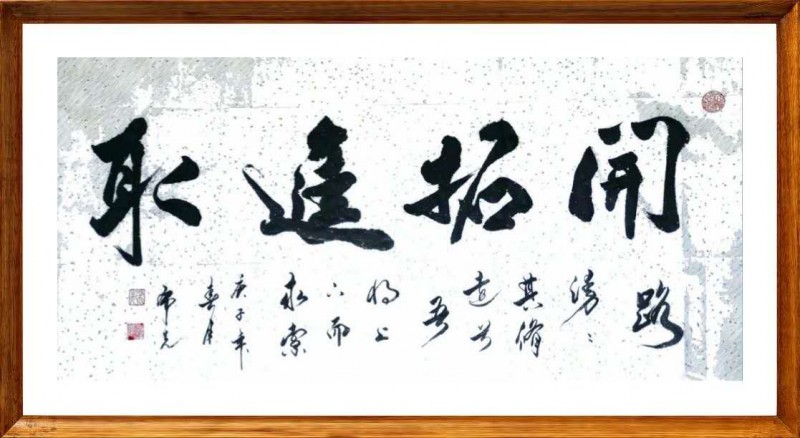 開拓進取
路
漫〻
其脩
遠兮
吾
将上
下而
求索
庚子年
春月